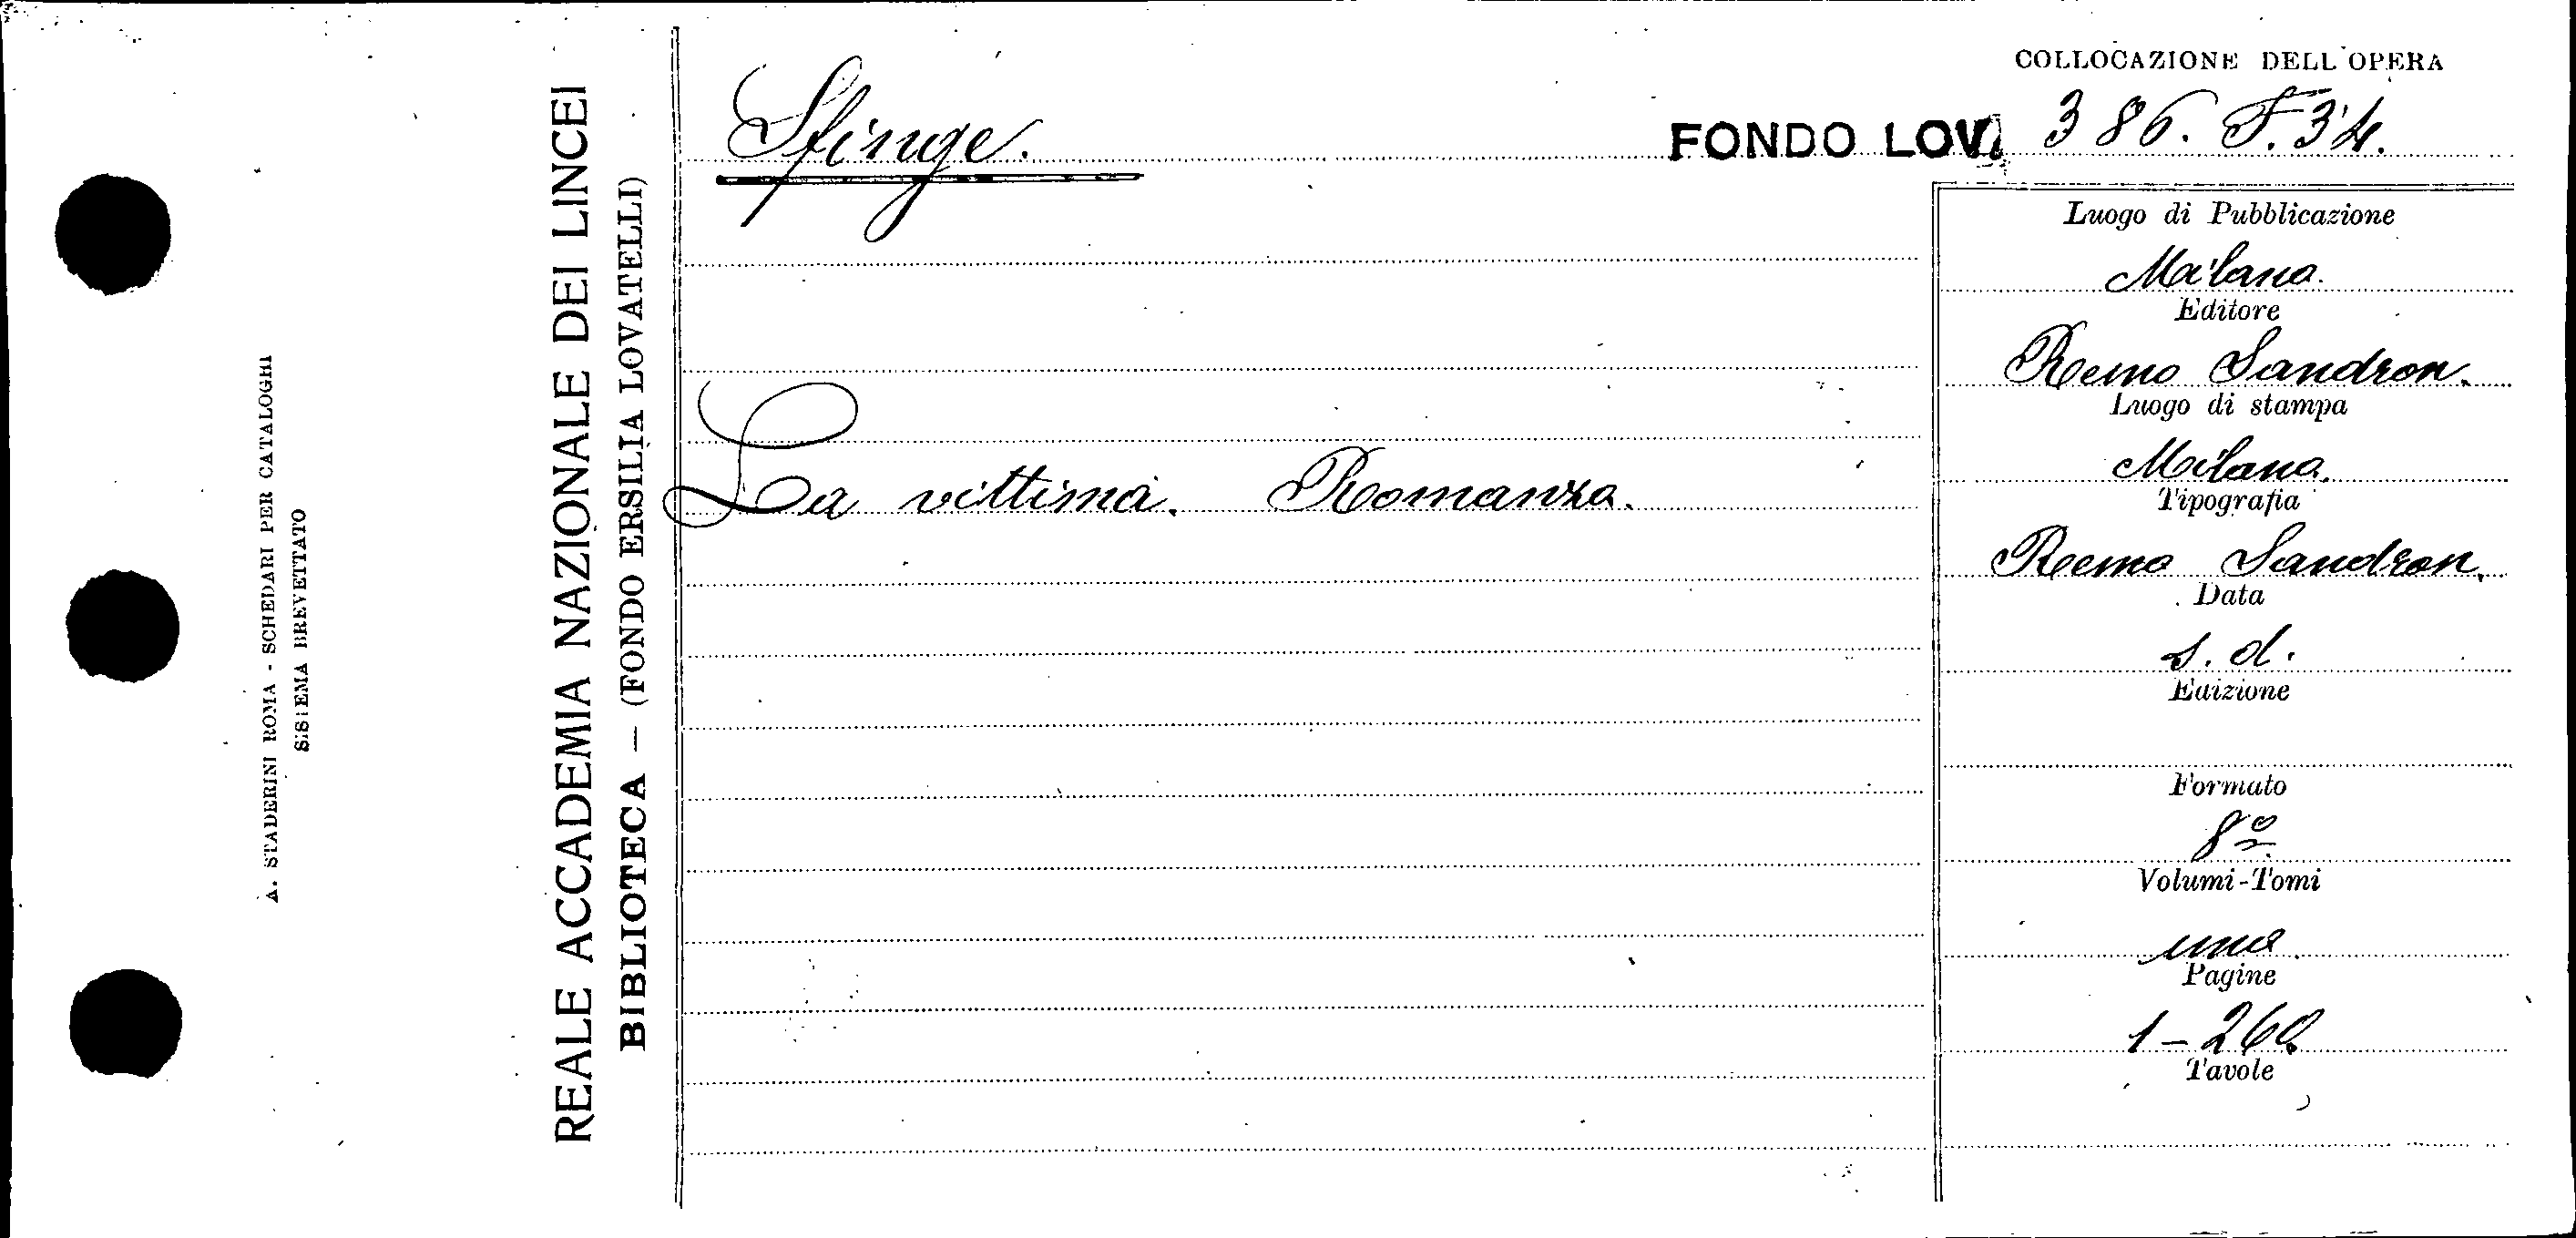 COLLOCAZIONE DELL'OPERA
Sfinge.
FONDO LOV. 386. F. 34.
La vittima. Romanzo.
Luogo di Pubblicazione
Milano.
Editore
Remo Sandron.
Luogo di stampa
Milano.
Tipografia
Remo Sandron.
Data
s. d.
Edizione
Formato
8º
Volumi-Tomi
uno.
Pagine
Tavole
REALE ACCADEMIA NAZIONALE DEI LINCEI
BIBLIOTECA — (FONDO ERSILIA LOVATELLI)
A. STADERINI ROMA - SCHEDARI PER CATALOGHI
SISTEMA BREVETTATO